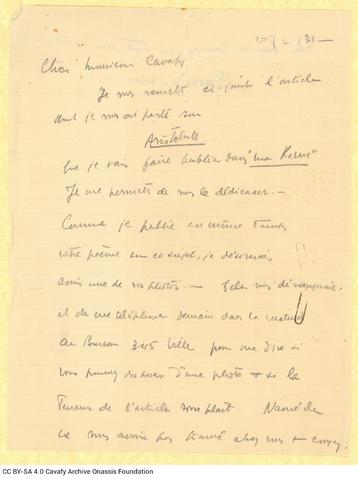 Cher Monsieur Cavafy
Je vous remets ci-joint l'article
dont je vous ai parlé sur
Aristobule
que je vais faire publier dans "ma Revue"
Je me permets de vous le dédicacer. —
Comme je publie en même temps
votre poème sur ce sujet, je désirerais
aussi une de vos photos. — Cela vous dérangerait-
il de me téléphoner demain dans la matinée
au Bureau 345 Ville pour me dire si
vous pouvez disposer d'une photo + si la
Teneur de l'article vous plaît.
vous avoir pas trouvé chez vous +
CC BY-SA 4.0 Cavafy Archive Onassis Foundation